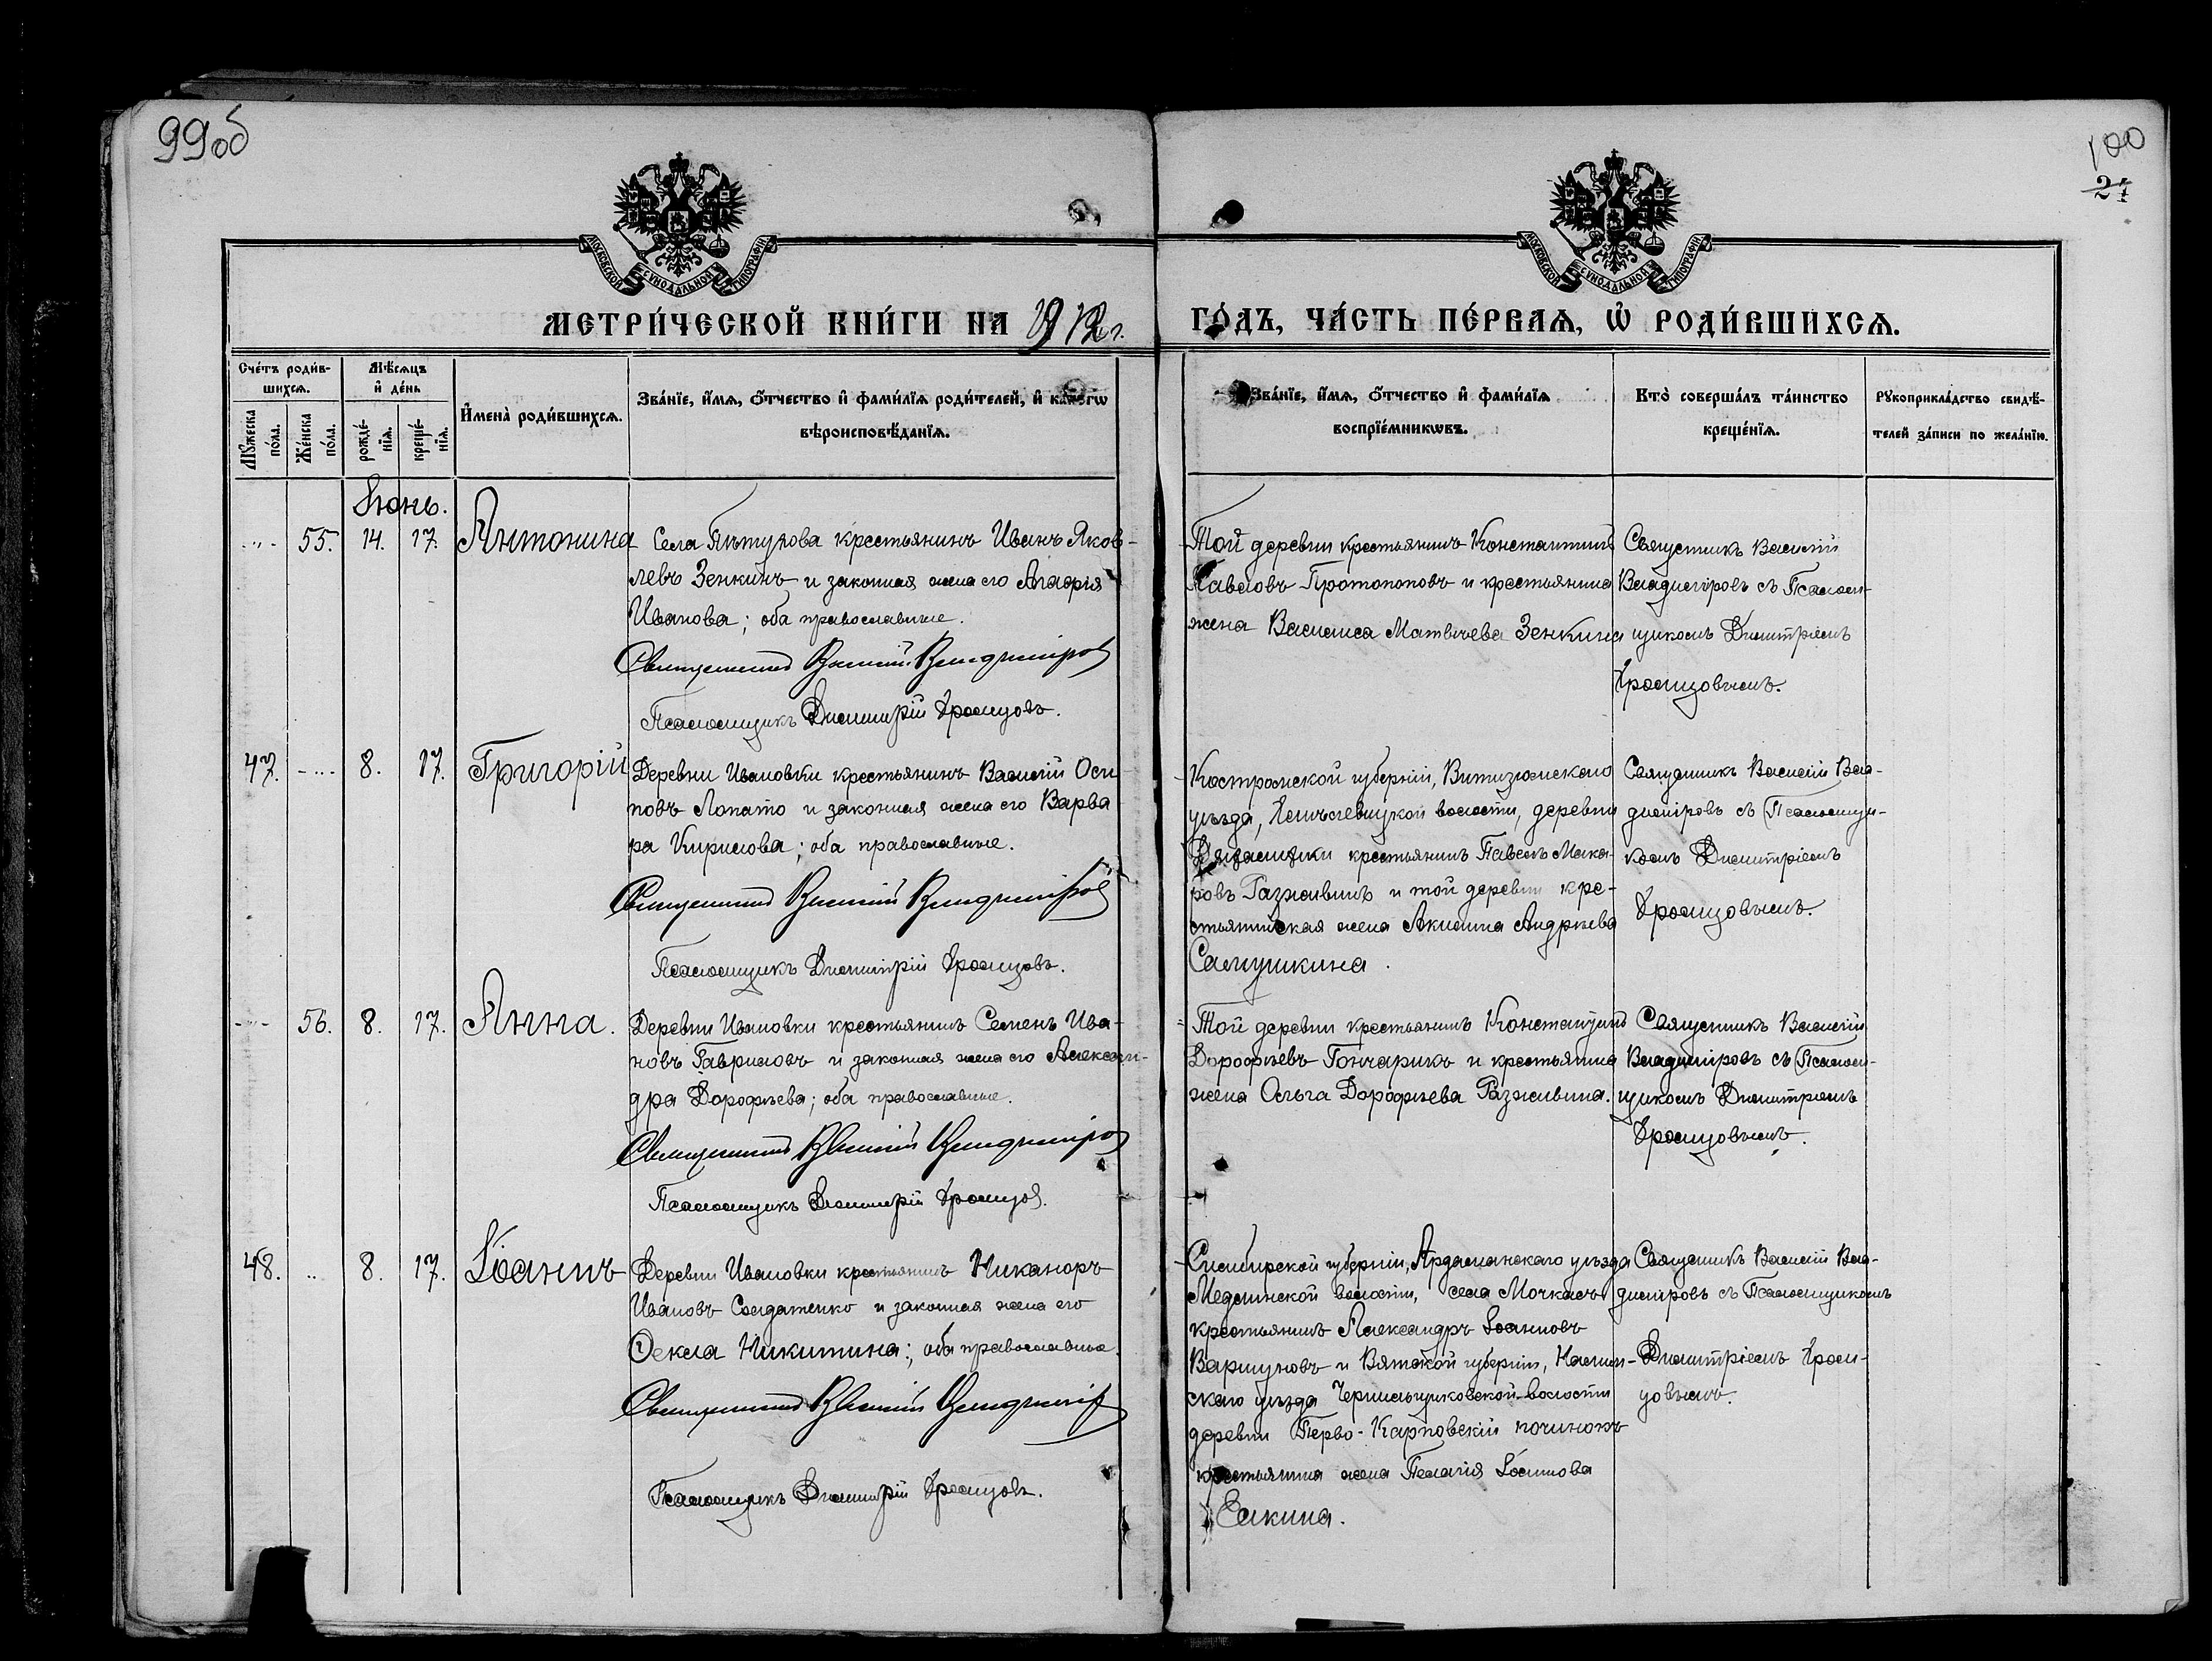 99об
100
27
МОСКОВСКОЙ СѴНОДАЛЬНОЙ ТИПОГРАФІИ
МОСКОВСКОЙ СѴНОДАЛЬНОЙ ТИПОГРАФІИ
МЕТРИ́ЧЕСКОЙ КНИ́ГИ НА 1912 г.
ГО́ДЪ, ЧА́СТЬ ПЕ́РВАЯ, Ѿ РОДИ́ВШИХСЯ.
Сче́тъ роди́в-
шихся.
Мѣ́сяцъ
и҆ де́нь
Мꙋ́жеска по́ла.
Же́нска по́ла.
рожде́-
нїя.
креще́-
нїя.
И҆мена̀ роди́вшихся.
Зва́нїе, и҆́мя, ѻ҆́тчество и҆ фами́лїя роди́телей, и҆
вѣроисповѣ́данїя.
Зва́нїе, и҆́мя, ѻ҆́тчество и҆ фами́лїя
воспрїе́мникѡвъ.
Кто̀ соверша́лъ та́инство
креще́нїя.
Рꙋкоприкла́дство свидѣ́-
телей за́писи по жела́нїю.
Іюнь.
55. 14. 17. Антонина
Села Пѣтухова крестьянинъ Иванъ Яков-
левъ Зенкинъ и законная жена его Агафія
Иванова; оба православные.
Священникъ Василій Владиміровъ
Псаломщикъ Димитрій
Той деревни крестьянинъ Константинъ
Павловъ Протопоповъ и крестьянина
жена Василиса Матвѣева Зенкина
Священникъ Василій
Владиміровъ съ Псалом-
щикомъ Димитріемъ
47. 8. 17. Григорій
Деревни Ивановки крестьянинъ Василій Оси-
повъ Лопато и законная жена его Варва-
ра Кирилова; оба православные.
Священникъ Василій Владиміровъ
Псаломщикъ Димитрій
Костромской губерніи,
уѣзда, волости, деревни
крестьянинъ Павелъ Мака-
ровъ Разживинъ и той деревни кре-
стьянская жена Акилина Андрѣева
Самушкина.
Священникъ Василій Вла-
диміровъ съ Псаломщи-
комъ Димитріемъ
56. 8. 17. Анна.
Деревни Ивановки крестьянинъ Семенъ Ива-
новъ Гавриловъ и законная жена его Алексан-
дра Дорофѣева; оба православные.
Священникъ Василій Владиміровъ
Псаломщикъ Димитрій
Той деревни крестьянинъ Константинъ
Дорофѣевъ Гончарикъ и крестьянина
жена Ольга Дорофѣева Разживина.
Священникъ Василій
Владиміровъ съ Псалом-
щикомъ Димитріемъ
48. 8. 17. Іоаннъ
Деревни Ивановки крестьянинъ Никаноръ
Ивановъ Солдатенко и законная жена его
Ѳекла Никитина; оба православные.
Священникъ Василій Владиміровъ
Псаломщикъ Димитрій
Симбирской губерніи, Ардаманскаго уѣзда
волости, села
крестьянинъ Александръ Іоанновъ
и Вятской губерніи,
скаго уѣзда волости
деревни Перво-Карповскій починокъ
крестьянина жена Пелагія Іоаннова
Елкина.
Священникъ Василій Вла-
диміровъ съ Псаломщикомъ
Димитріемъ